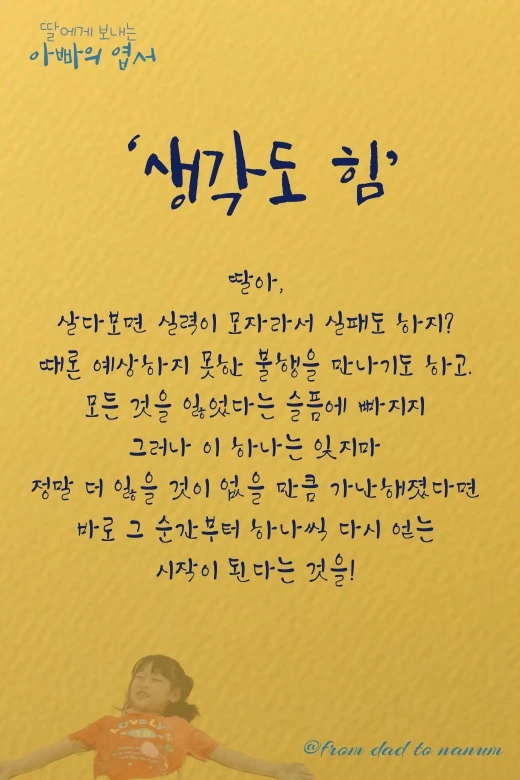 딸에게 보내는
아빠의 엽서
'생각도 힘'
딸아,
살다보면 실력이 모자라서 실패도 하지?
때론 예상하지 못한 불행을 만나기도 하고.
모든 것을 잃었다는 슬픔에 빠지지
그러나 이 하나는 잊지마
정말 더 잃을 것이 없을 만큼 가난해졌다면
바로 그 순간부터 하나씩 다시 얻는
시작이 된다는 것을!
LOVELY
@from dad to nanum